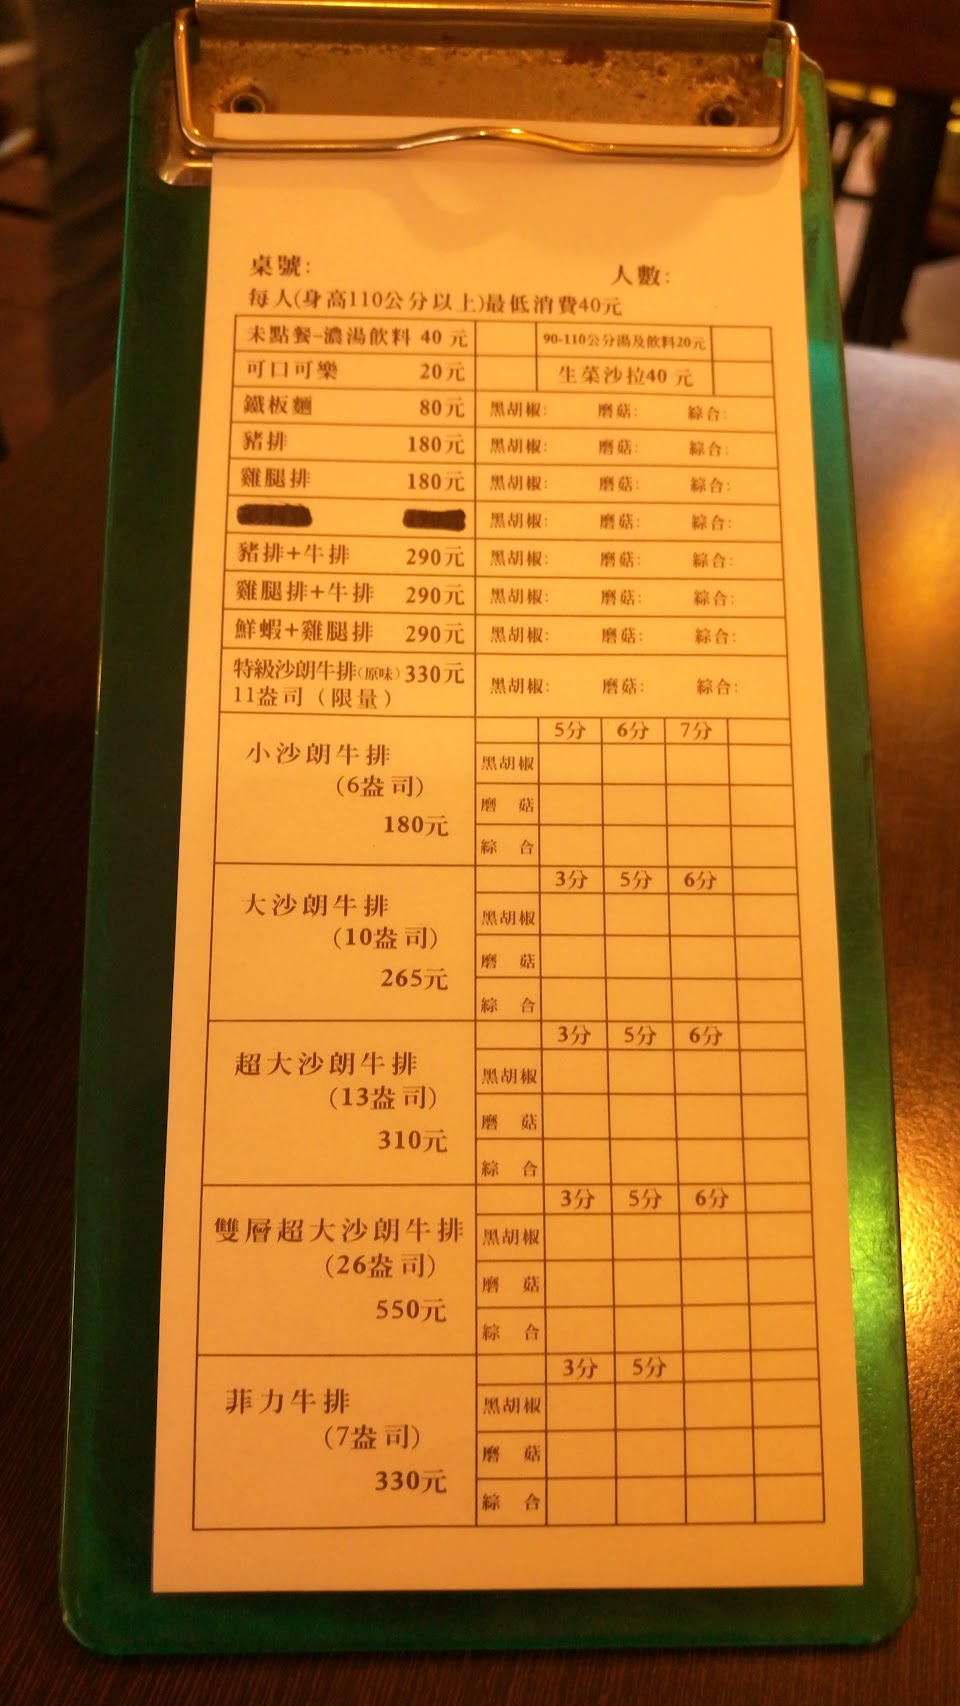 桌號: 人數:
每人(身高110公分以上)最低消費40元
未點餐-濃湯飲料 40 元 90-110公分湯及飲料20元
可口可樂 20元 生菜沙拉40 元
鐵板麵 80元 黑胡椒: 磨菇: 綜合:
豬排 180元 黑胡椒: 磨菇: 綜合:
雞腿排 180元 黑胡椒: 磨菇: 綜合:
黑胡椒: 磨菇: 綜合:
豬排+牛排 290元 黑胡椒: 磨菇: 綜合:
雞腿排+牛排 290元 黑胡椒: 磨菇: 綜合:
鮮蝦+雞腿排 290元 黑胡椒: 磨菇: 綜合:
特級沙朗牛排(原味) 330元
11盎司（限量） 黑胡椒: 磨菇: 綜合:
5分 6分 7分
小沙朗牛排 黑胡椒
(6盎司) 磨 菇
180元 綜 合
3分 5分 6分
大沙朗牛排 黑胡椒
(10盎司) 磨 菇
265元 綜 合
3分 5分 6分
超大沙朗牛排 黑胡椒
(13盎司) 磨 菇
310元 綜 合
3分 5分 6分
雙層超大沙朗牛排 黑胡椒
(26盎司) 磨 菇
550元 綜 合
3分 5分
菲力牛排 黑胡椒
(7盎司) 磨 菇
330元 綜 合